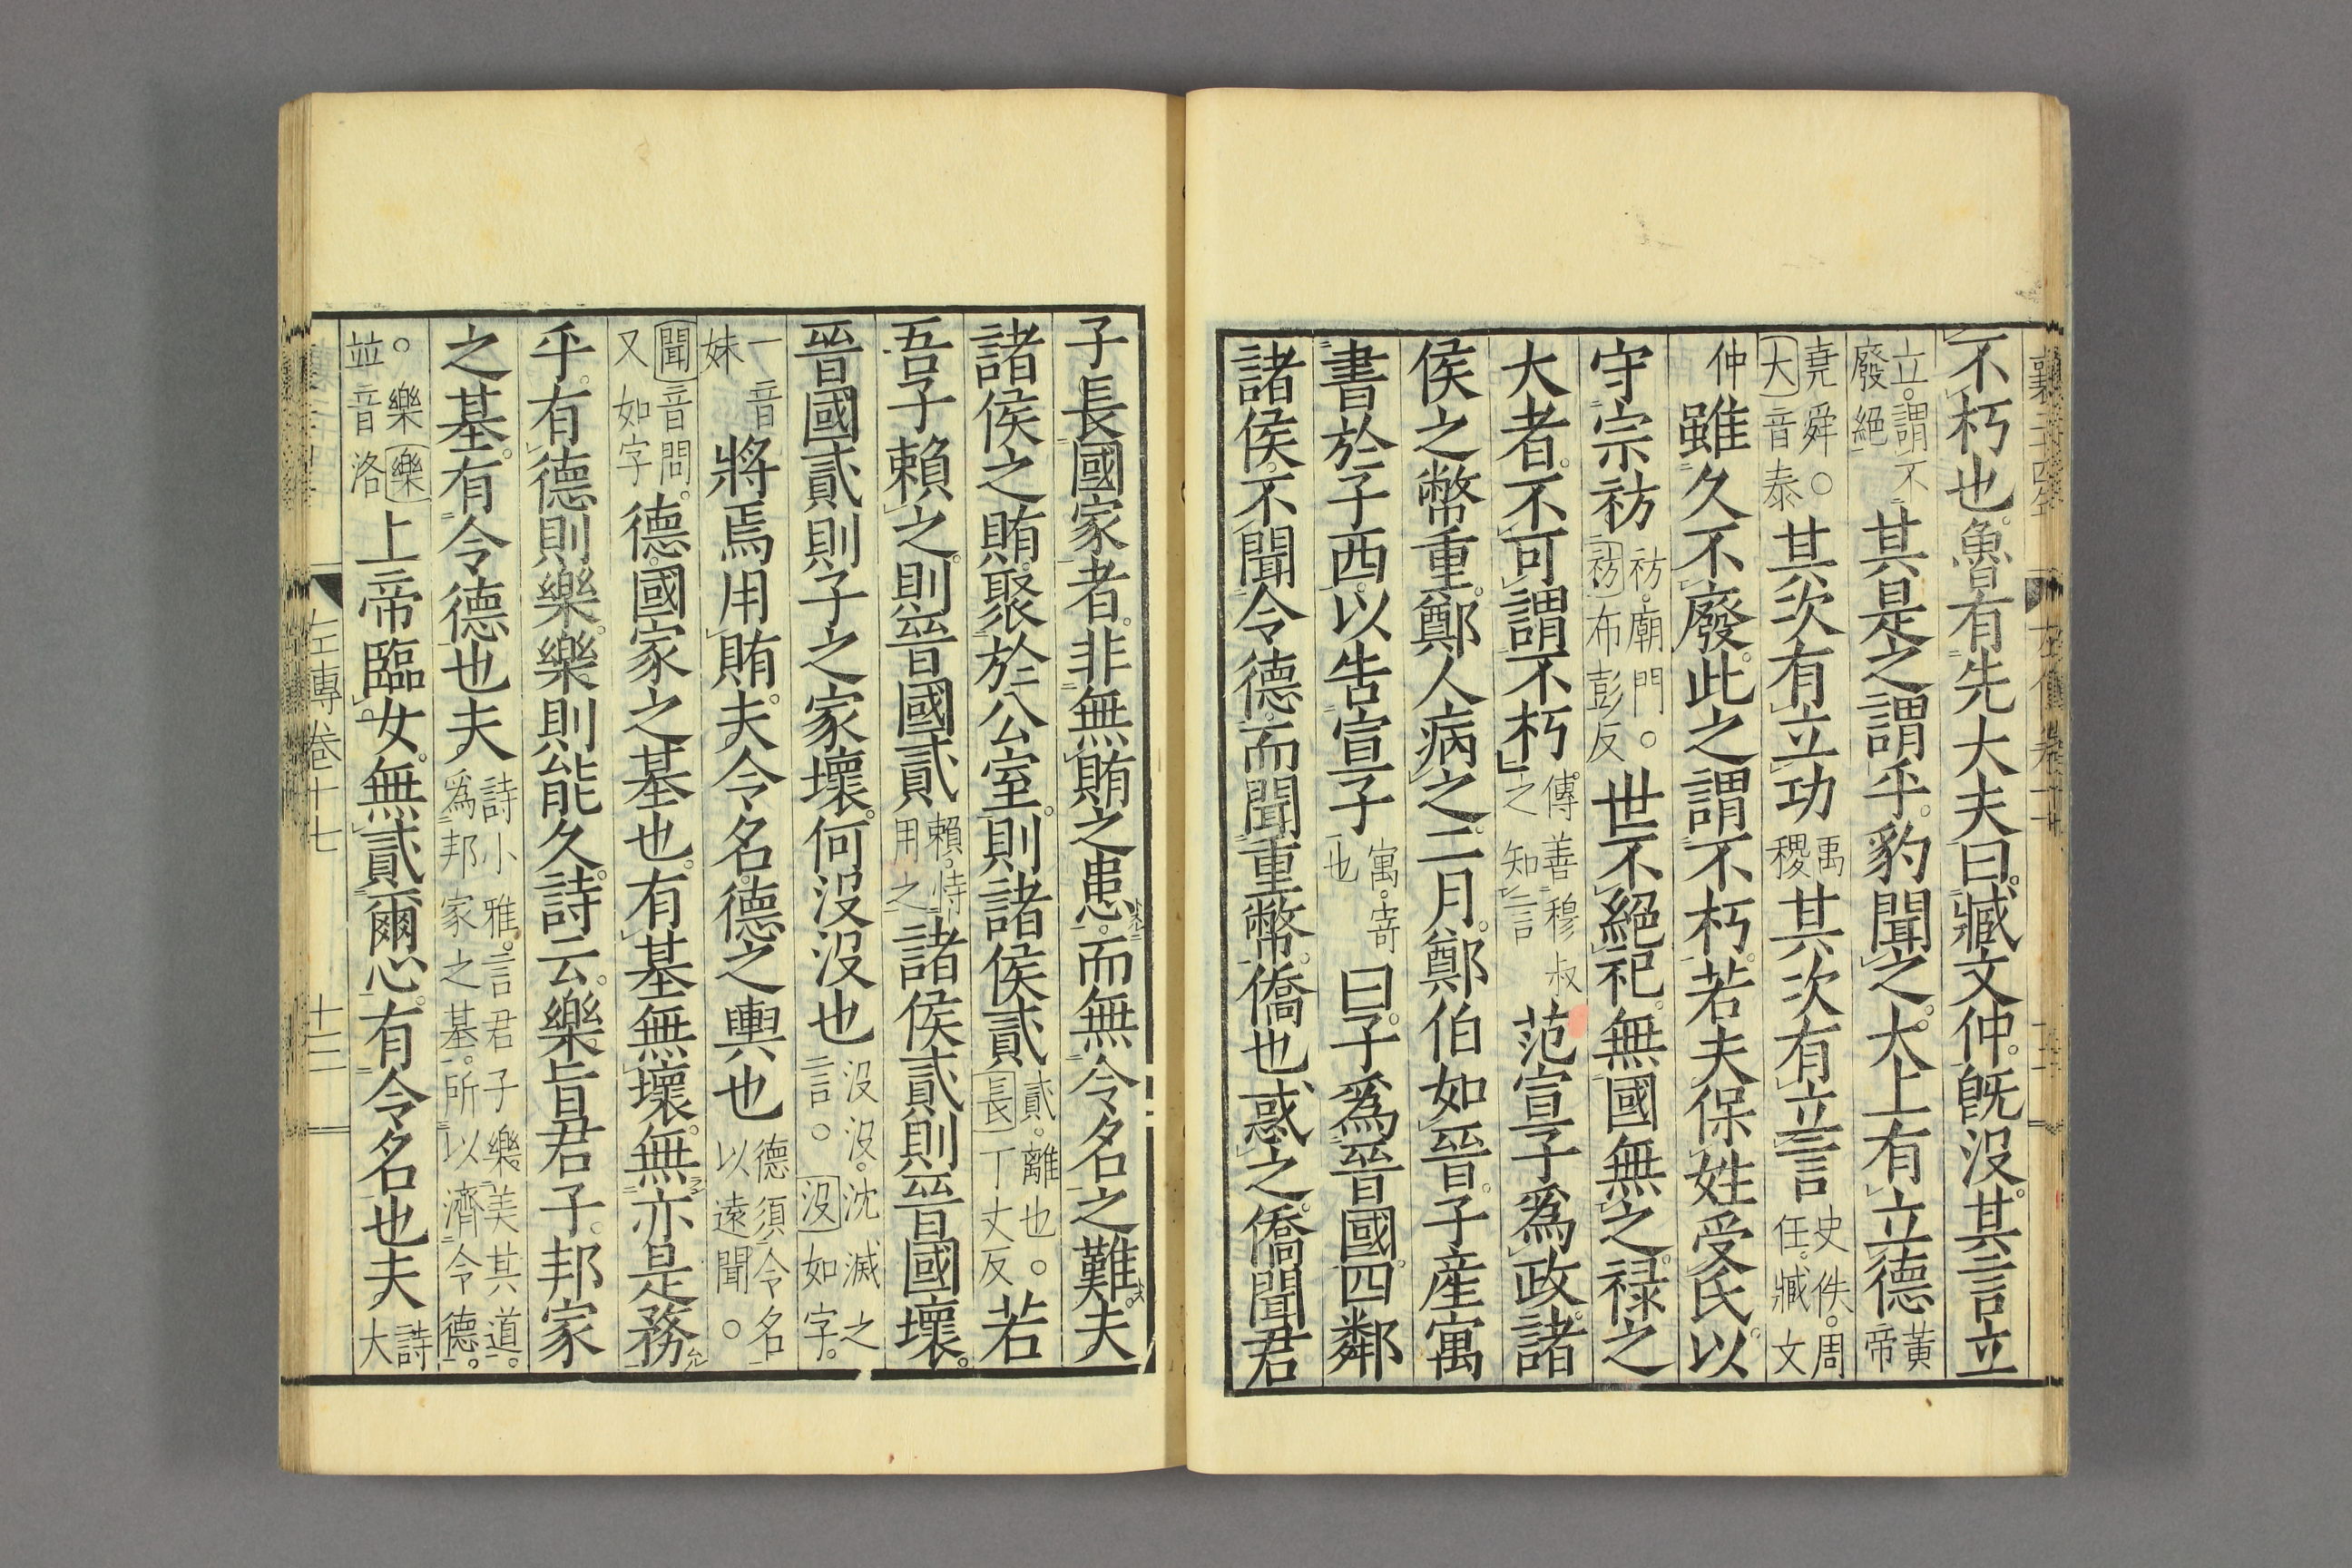 襄二十四年
左傳卷十七
不朽也魯有先大夫曰臧文仲旣没其言立
立謂不廢絕其是之謂乎豹聞之大上有立德黃帝
堯舜○大音泰其次有立功禹稷其次有立言史佚周任臧文
仲雖久不廢此之謂不朽若夫保姓受氏以
守宗祊祊廟門○祊布彭反世不絕祀無國無之祿之
大者不可謂不朽傳善穆叔之知言范宣子爲政諸
侯之幣重鄭人病之二月鄭伯如晉子產寓
書於子西以告宣子寓寄也曰子爲晉國四鄰
諸侯不聞令德而聞重幣僑也惑之僑聞君
子長國家者非無賄之患而無令名之難夫
諸侯之賄聚於公室則諸侯貳貳離也○長丁丈反若
吾子賴之則晉國貳賴恃用之諸侯貳則晉國壞
晉國貳則子之家壞何没没也没没沈滅之言○没如字
一音妹將焉用賄夫令名德之輿也德須令名以遠聞○
聞音問又如字德國家之基也有基無壞無亦是務
乎有德則樂樂則能久詩云樂旨君子邦家
之基有令德也夫詩小雅言君子樂美其道爲邦家之基所以濟令德
○樂樂並音洛上帝臨女無貳爾心有令名也夫詩大
左傳卷十七
十二